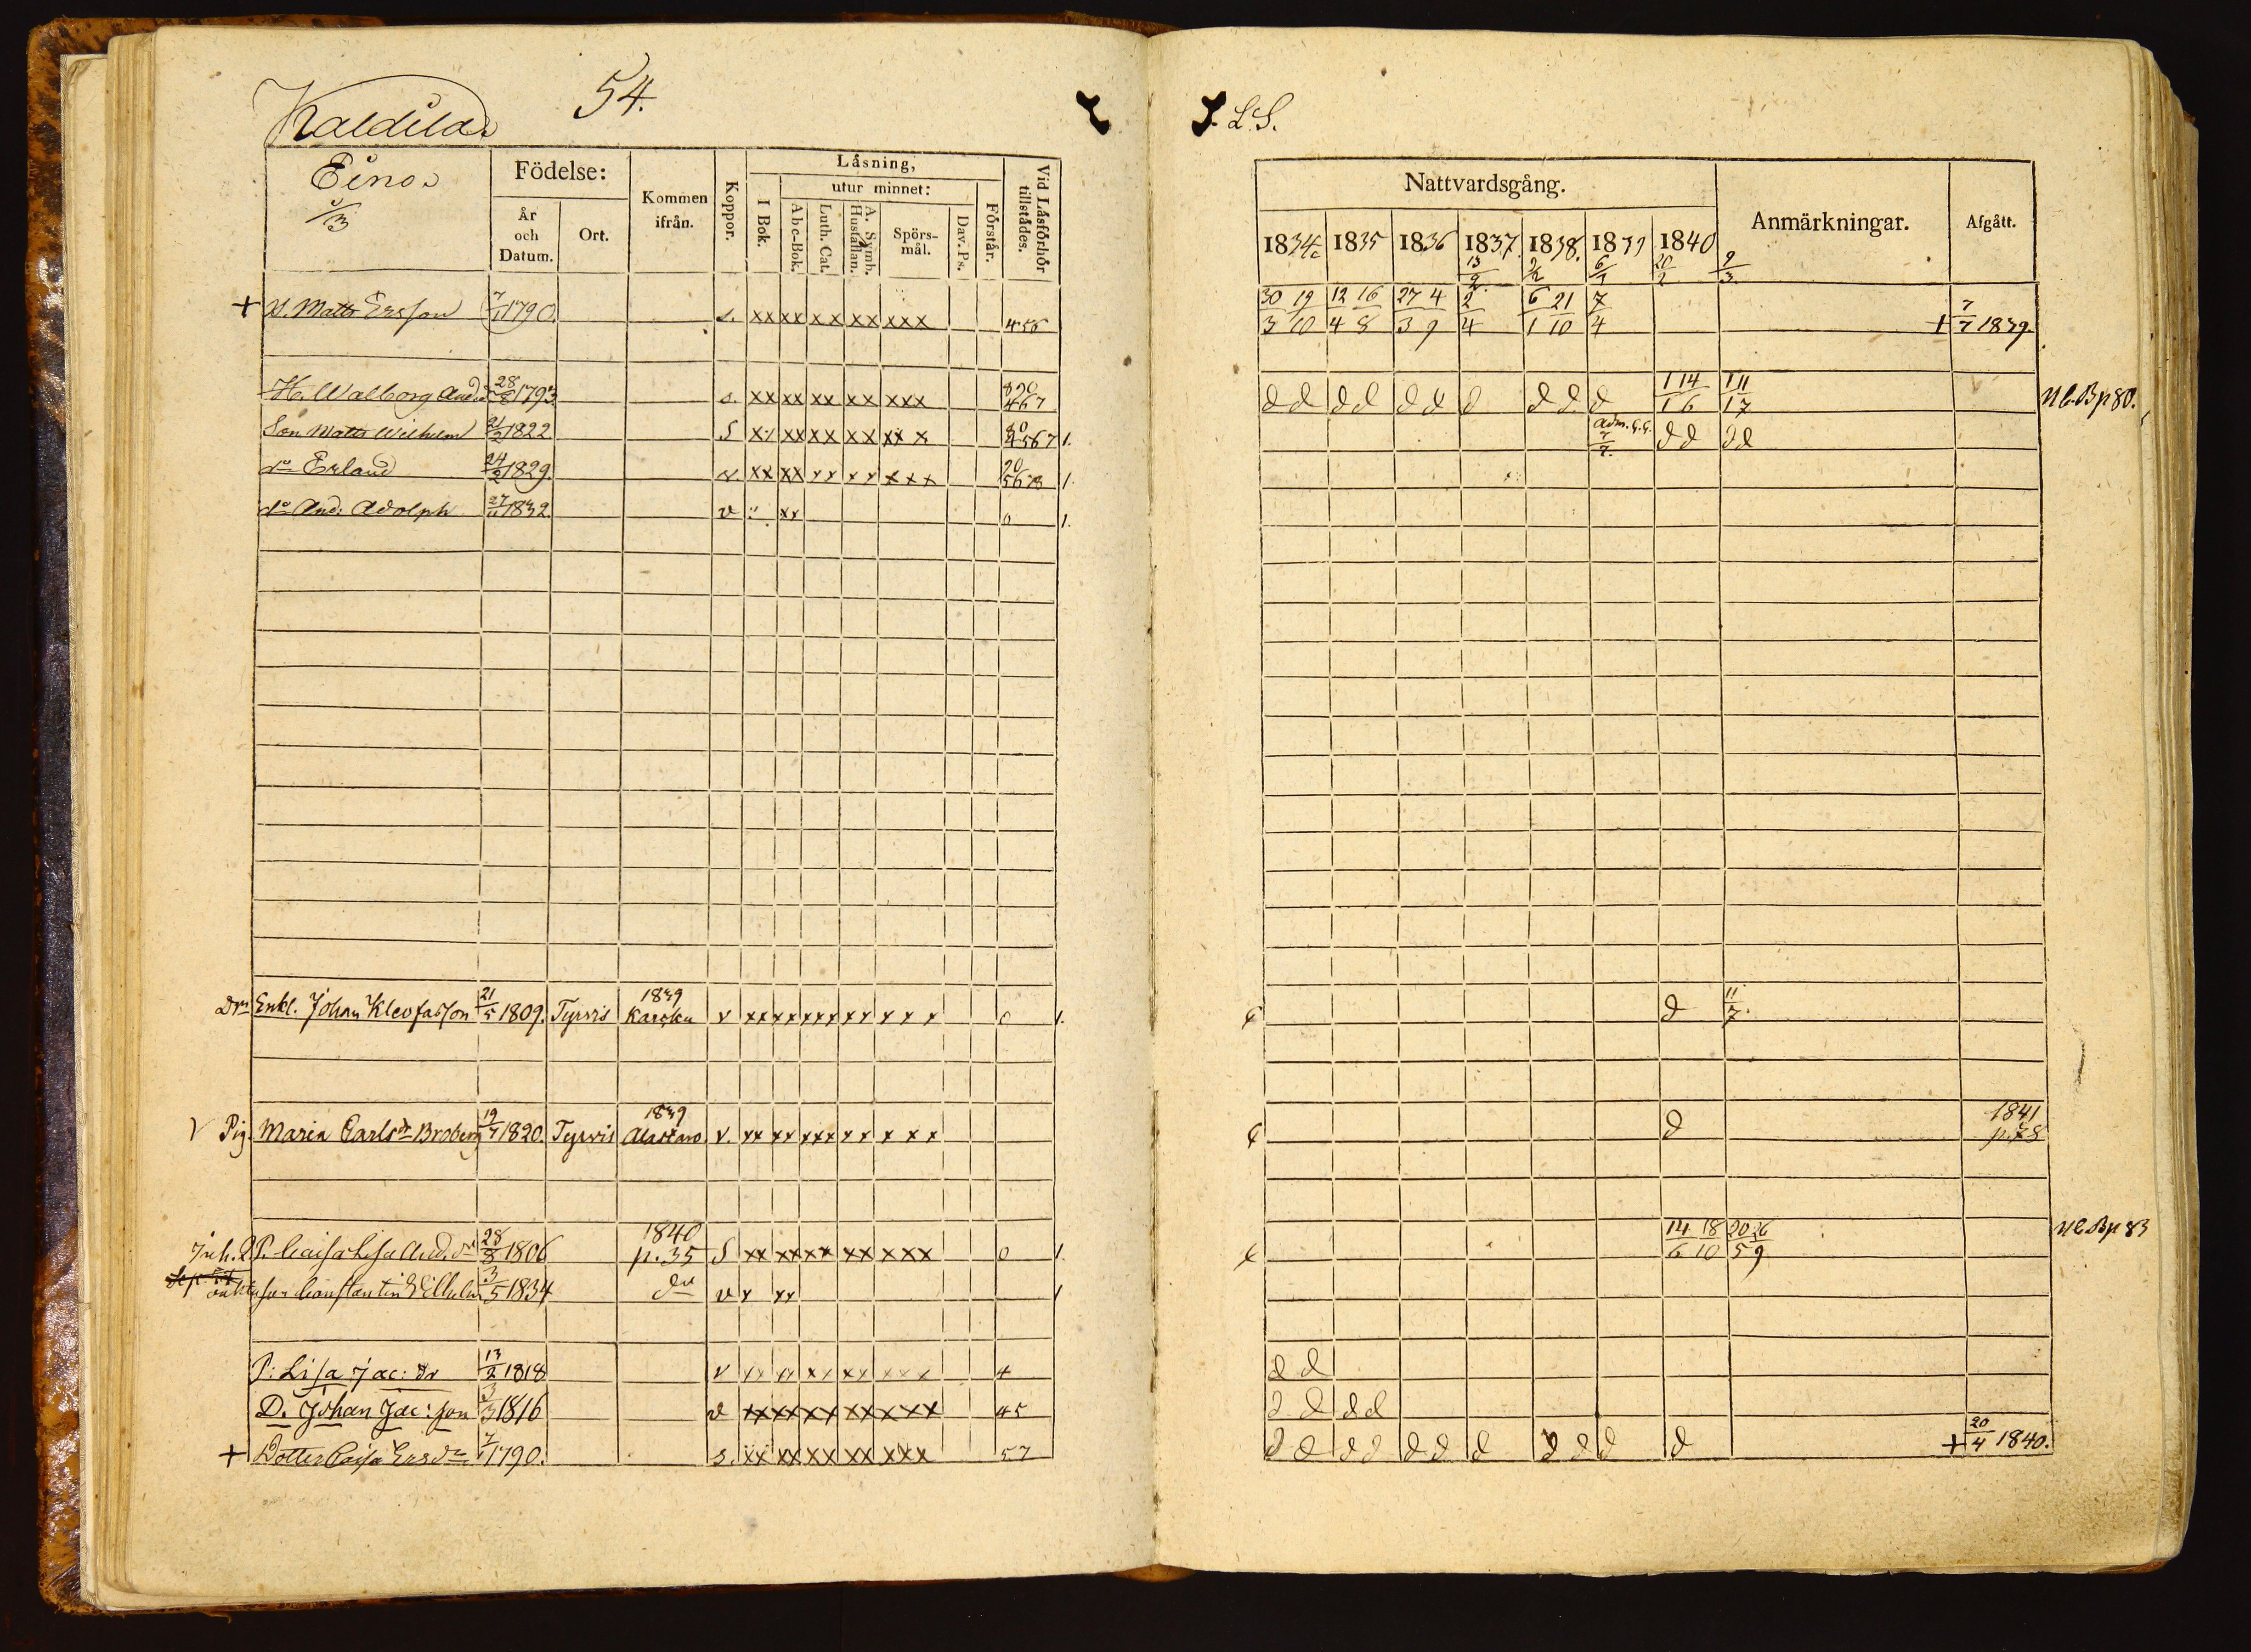 54.
L.S.
Eino.
Födelse:
År och Datum.
Ort.
Kommen ifrån.
Koppor.
Läsning,
I Bok.
utur minnet:
A b c-Bok.
Luth. Cat.
A. Symb. Hustaflan.
Spörs-mål.
Dav. Ps.
Förstår.
Vid Läsförhör tillstädes.
Nattvardsgång.
1834 1835 1836 1837. 1838. 1839 1840
Anmärkningar.
Afgått.
+ V. Matts Ersson 7/1 1790. s. xx xx xx xx xxx 456 30/3 19/10 12/4 16/8 27/3 4/9 2/4 6/1 21/10 7/4 + 7/7 1839.
H. Walborg And.dr 28/8 1793 s. xx xx xx xx xxx 467 d d d d d d d d d d 1/1 14/6 1/1 11/7 N.C.B p 80.
Son Matts Wilhelm 21/2 1822 S xx xx xx xx 567 1. adm. d d d d
do Erland 24/2 1829. v. xx xx xx xx xxx 20 1.
do And: Adolph 27/11 1832. v xx 0 1.
Drg Enkl. Johan Kleofasson 21/5 1809. Tyrvis 1839 v xx xx xxx xx xxx 0 1. d 11/7.
V Pig. Maria Carlsdr Broberg 19/7 1820. Tyrvis 1839 Alastaro v. xx xx xxx xx x xx d 1841 p. 78
Inh. P. Caisa Lisa And.dr 28/8 1806 1840 p. 35 S xx xx xx xx xxx 0 1. 14/6 18/10 20/5 26/9 N.C.B p 83
son Constantin Wilhelm 3/5 1834 do v x xx 1
P: Lisa Jac: dr 13/2 1818 v xx xx xx xx xxx 4 d d
D. Johan Jac: son 3/3 1816 v xx xx xx xx xxx 45 d d d d
+ Dotter Caisa Ersdr 7/1 1790. s. xx xx xx xx xxx 57 d d d d d d d d d d d + 20/4 1840.